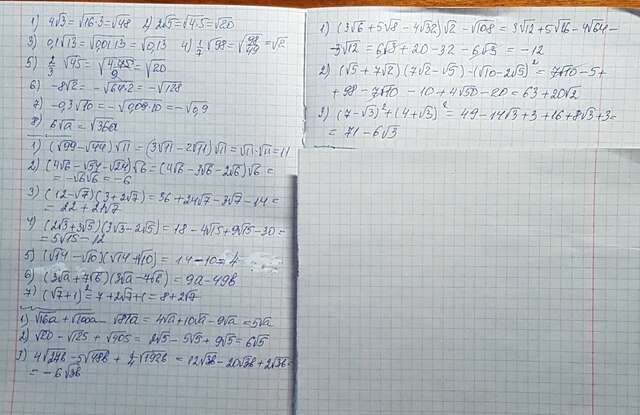 1) 4√3 = √16·3 = √48 2) 2√5 = √4·5 = √20
3) 0,1√13 = √0,01·13 = √0,13 4) 1/7 √98 = √98/49 = √2
5) 2/3 √45 = √4·45/9 = √20
6) -8√2 = -√64·2 = -√128
7) -0,3√10 = -√0,09·10 = -√0,9
8) 6√a = √36a
1) (√99 - √44)√11 = (3√11 - 2√11)√11 = √11·√11 = 11
2) (4√6 - √54 - √24)√6 = (4√6 - 3√6 - 2√6)√6 =
= -√6√6 = -6
3) (12-√7)(3+2√7) = 36 + 24√7 - 3√7 - 14 =
= 22 + 21√7
4) (2√3+3√5)(3√3-2√5) = 18 - 4√15 + 9√15 - 30 =
= 5√15 - 12
5) (√14 - √10)(√14 + √10) = 14 - 10 = 4
6) (3√a + 7√b)(3√a - 7√b) = 9a - 49b
7) (√7+1)² = 7 + 2√7 + 1 = 8 + 2√7
1) √16a + √100a - √81a = 4√a + 10√a - 9√a = 5√a
2) √20 - √125 + √405 = 2√5 - 5√5 + 9√5 = 6√5
3) 4√27b - 5√48b + 1/4 √192b = 12√3b - 20√3b + 2√3b =
= -6√3b
1) (3√6 + 5√8 - 4√32)√2 - √108 = 3√12 + 5√16 - 4√64 -
- 3√12 = 6√3 + 20 - 32 - 6√3 = -12
2) (√5 + 7√2)(7√2 - √5) - (√10 - 2√5)² = 7√10 - 5 +
+ 98 - 7√10 - 10 + 4√50 - 20 = 63 + 20√2
3) (7-√3)² + (4+√3)² = 49 - 14√3 + 3 + 16 + 8√3 + 3 =
= 71 - 6√3